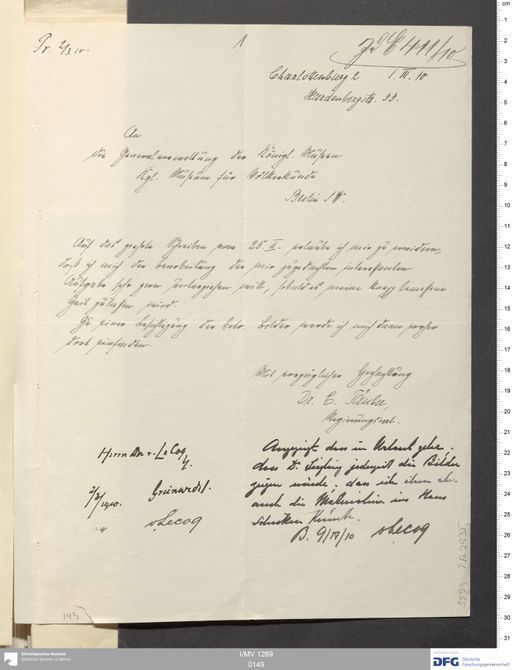 Pr. 2/3 10.
1
E 411/10
Charlottenburg 2 1. III. 10
Hardenbergstr. 33.
An
die Generalverwaltung der Königl. Museen
Kgl. Museum für Völkerkunde
Berlin SW.
Auf das geehrte Schreiben vom 25. II. erlaube ich mir zu erwidern,
daß ich mich der Bearbeitung der mir zugedachten interessanten
Aufgabe sehr gern unterziehen will, sobald es meine knapp bemessene
Zeit zulassen wird.
Zu einer Besichtigung der betr. Bilder werde ich mich dann vorher
dort einfinden.
Mit vorzüglicher Hochachtung
Dr. E. Täuber,
Regierungsrat.
Herrn Dr. v. Le Coq
2/3 1910. Grünwedel.
v. Lecoq
Angezeigt dass in Urlaub gehe.
dass Dr. Siegling jederzeit die Bilder
zeigen würde. dass ich ihm aber
auch die Materialien ins Haus
schicken könnte.
B. 9/IV/10 v. Lecoq
143
Ethnologisches Museum
Staatliche Museen zu Berlin
I/MV 1269
0149
DFG Deutsche
Forschungsgemeinschaft